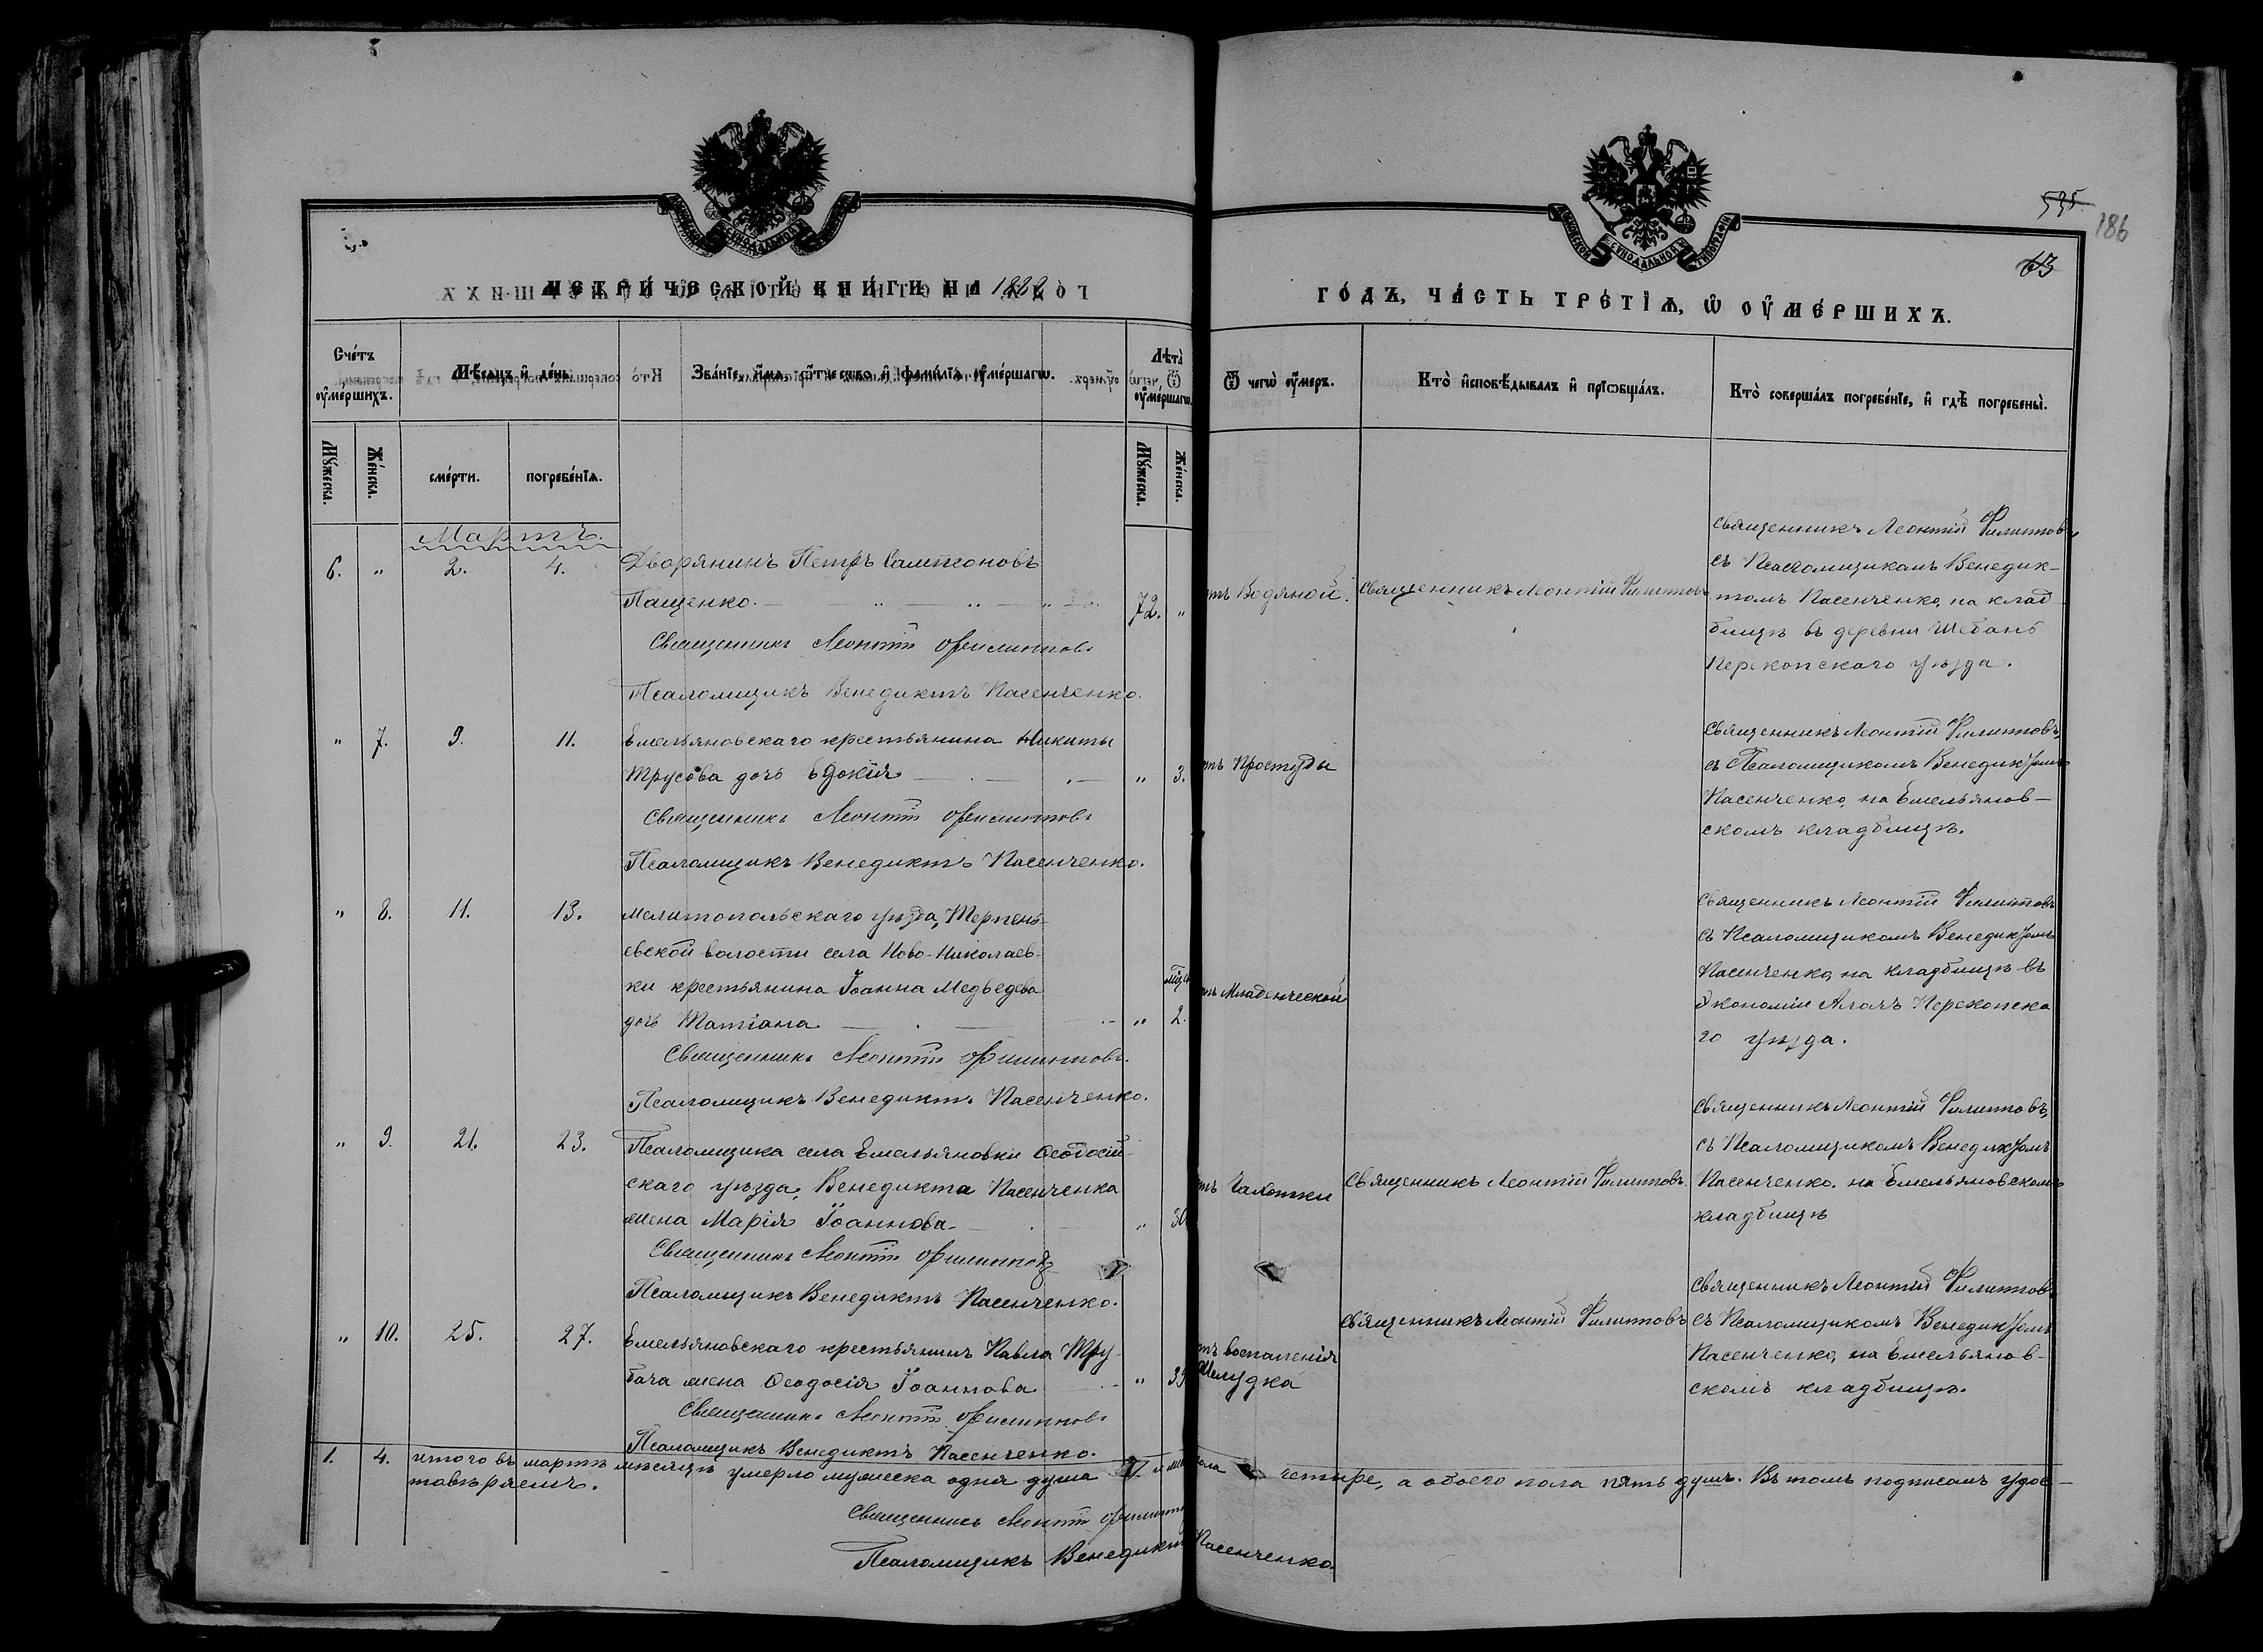 535
186
63
МЕТРИ́ЧЕСКОЙ КНИ́ГИ НА 1882
ГО́ДЪ, ЧА́СТЬ ТРЕ́ТІѦ, Ѡ ОУ҆МЕ́РШИХЪ.
Сче́тъ оу҆ме́ршихъ.
Мѣ́сѧцъ и҆ де́нь
Зва́нїе, и҆́мѧ, ѻ҆́тчество и҆ фами́лїѧ оу҆ме́ршагѡ.
Лѣта̀ оу҆ме́ршагѡ.
Ѿ чегѡ̀ оу҆́меръ.
Кто̀ и҆сповѣ́дывалъ и҆ прїѡбща́лъ.
Кто̀ соверша́лъ погребе́нїе, и҆ гдѣ̀ погребены̀.
Мꙋ́жеска.
Же́нска.
сме́рти.
погребе́нїѧ.
Мꙋ́жеска.
Же́нска.
Мартъ.
6. „ 2. 4. Дворянинъ Петръ Сампсоновъ
Пащенко. 72. „
Священникъ Леонтій Филипповъ
Псаломщикъ Венедиктъ Пасенченко.
отъ Водяной. Священникъ Леонтій Филипповъ
Священникъ Леонтій Филипповъ,
съ Псаломщикомъ Венедик-
томъ Пасенченко, на клад
бищѣ въ деревни Шебань
Перекопскаго уѣзда.
„ 7. 9. 11. Емельяновскаго крестьянина Никиты
Трусова дочь Евдокія „ 3.
Священникъ Леонтій Филипповъ
Псаломщикъ Венедиктъ Пасенченко.
отъ Простуды
Священникъ Леонтій Филипповъ,
съ Псаломщикомъ Венедиктомъ
Пасенченко, на Емельянов-
скомъ кладбищѣ.
„ 8. 11. 13. Мелитопольскаго уѣзда, Терпень-
евской волости села Ново-Николаев-
ки крестьянина Іоанна Медведева
дочь Татіана „ 2.
Священникъ Леонтій Филипповъ.
Псаломщикъ Венедиктъ Пасенченко.
отъ Младенческой
Священникъ Леонтій Филипповъ
съ Псаломщикомъ Венедиктомъ
Пасенченко, на кладбищѣ въ
Экономіи Перекопска
го уѣзда.
„ 9. 21. 23. Псаломщика села Емельяновки Ѳеодосій-
скаго уѣзда, Венедикта Пасенченка
жена Марія Іоаннова „ 30
Священникъ Леонтій Филипповъ
Псаломщикъ Венедиктъ Пасенченко.
отъ Чахотки Священникъ Леонтій Филипповъ.
Священникъ Леонтій Филипповъ,
съ Псаломщикомъ Венедиктомъ
Пасенченко. на Емельяновскомъ
кладбищѣ
„ 10. 25. 27. Емельяновскаго крестьянинъ Павла Тру-
бача жена Ѳеодосія Іоаннова „ 39
Священникъ Леонтій Филипповъ
Псаломщикъ Венедиктъ Пасенченко.
отъ воспаленія
Желудка
Священникъ Леонтій Филипповъ
Священникъ Леонтій Филипповъ
съ Псаломщикомъ Венедиктомъ
Пасенченко, на Емельянов-
скомъ кладбищѣ.
1. 4. итого въ мартѣ мѣсяцѣ умерло мужеска одна душа пола четыре, а обоего пола пять душъ. Въ томъ подписомъ удос-
товѣряемъ.
Священникъ Леонтій Филипповъ
Псаломщикъ Венедиктъ Пасенченко.